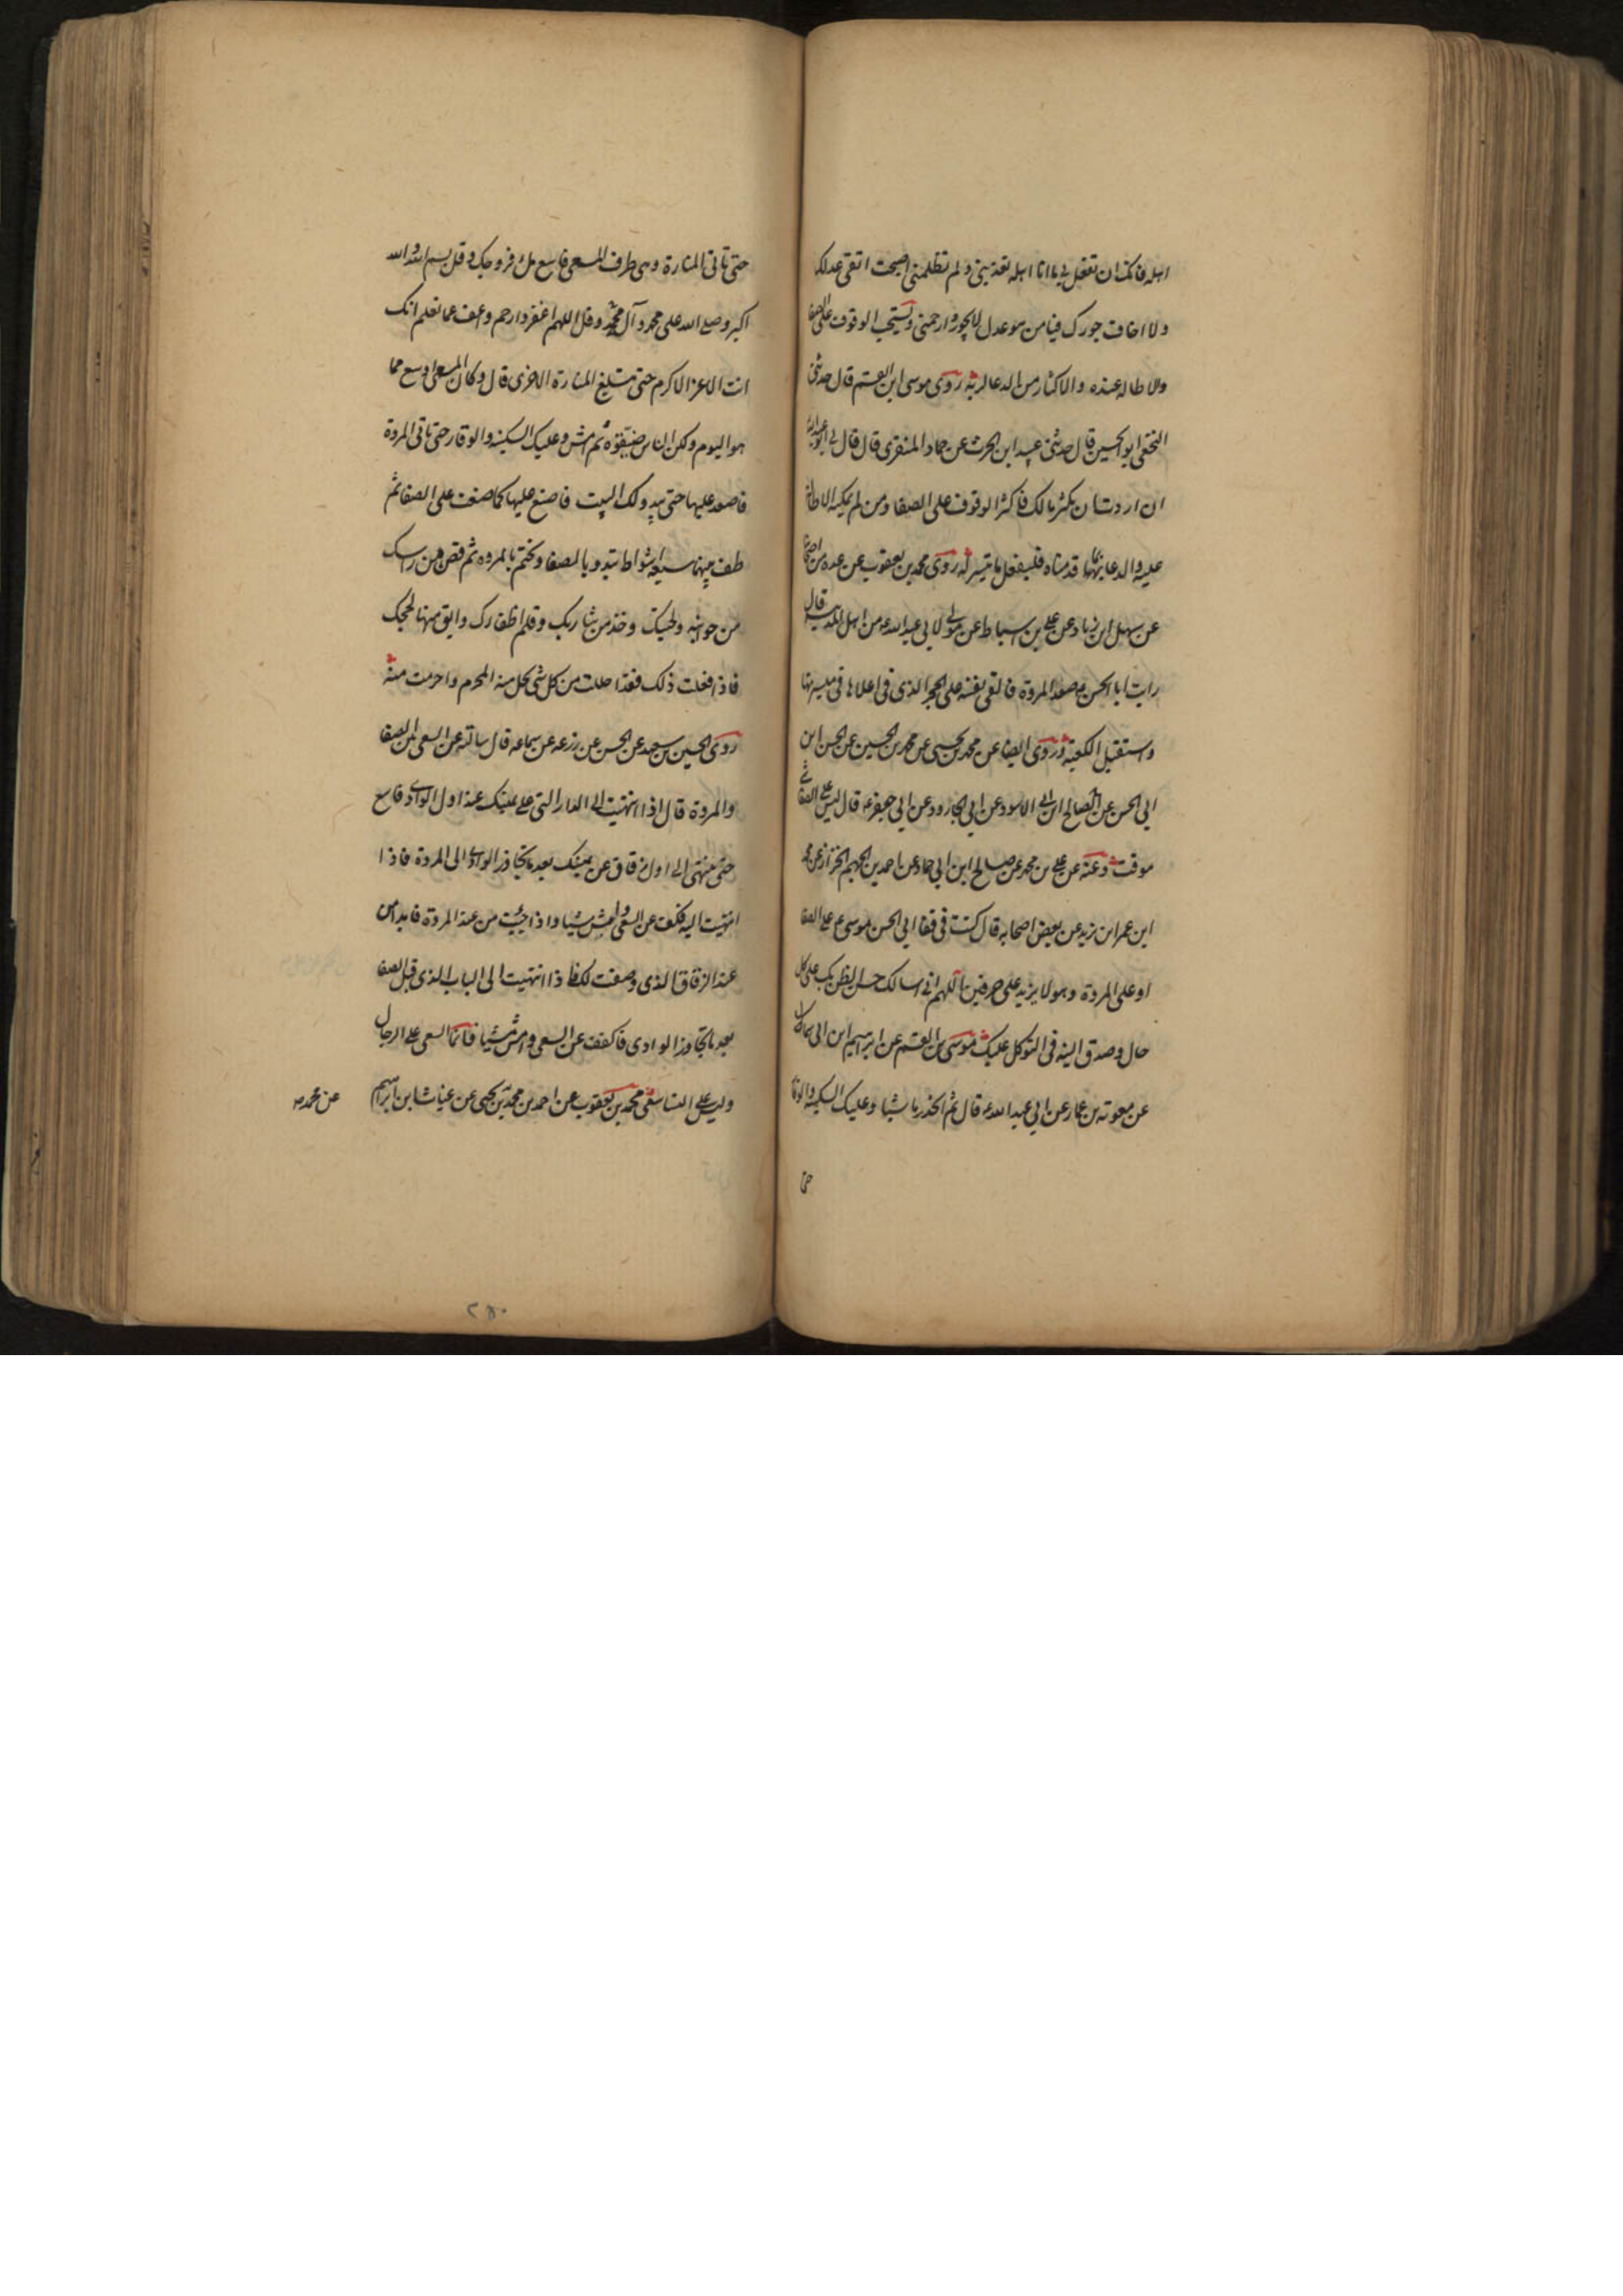 اهله فانك ان تفعل بي ما انا اهله تعذبني ولم تظلمني اصبحت اتقى عدلك
ولا اخاف جورك فيا من هو عدل لا يجور ارحمني ويستحب الوقوف على الصفا
والاطاله عنده والاكثار من الدعا لربه روى موسى ابن القسم قال حدثني
النخعي ابو الحسين قال حدثني عبيد ابن الحرث عن حماد المنقرى قال قال لي ابو عبدالله
ان اردت ان يكثر مالك فاكثر الوقوف على الصفا ومن لم يمكنه الاطالة
عليه والدعا بما قدمناه فليفعل ما تيسر له روى محمد بن يعقوب عن عده من اصحابنا
عن سهل ابن زياد عن علي بن اسباط عن مولى لابي عبدالله ع من اهل المدينة قال
رايت ابا الحسن ع صعد المروة فالقى نفسه على الحجر الذى فى اعلاها فى ميسرتها
واستقبل الكعبة وروى ايضا عن محمد بن يحيى عن محمد بن الحسين عن الحسن ابن
ابي الحسن عن صالح ابن ابي الاسود عن ابي الجارود عن ابي جعفر ع قال ليس على الصفا شي
موقت وعنه عن علي بن محمد عن صالح ابن ابي حماد عن احمد بن الجهم الخزاز عن محمد
ابن عمر ابن يزيد عن بعض اصحابه قال كنت فى قفا ابي الحسن موسى ع على الصفا
او على المروة وهو لا يزيد على حرفين اللهم اني اسالك حسن الظن بك على كل
حال وصدق النيه فى التوكل عليك موسى بن القسم عن ابرهيم ابن ابي سماك
عن معوية بن عمار عن ابي عبدالله ع قال ثم انحدر ماشيا وعليك السكينه والوقار
حتى
حتى تاتى المنارة وهى طرف المسعى فاسع ملء فروجك وقل بسم الله والله
اكبر وصلى الله على محمد وآل محمد وقل اللهم اغفر وارحم واعف عما تعلم انك
انت الاعز الاكرم حتى تبلغ المنارة الاخرى قال وكان المسعى اوسع مما
هو اليوم ولكن الناس ضيقوه ثم امش وعليك السكينه والوقار حتى تاتى المروة
فاصعد عليها حتى يبدو لك البيت فاصنع عليها كما صنعت على الصفا ثم
طف بينهما سبعة اشواط تبدو بالصفا وتختم بالمروه ثم قص من راسك
من جوانبه ولحيتك وخذ من شاربك وقلم اظفارك وابق منها لحجك
فاذا فعلت ذلك فقد احللت من كل شى يحل منه المحرم واحرمت منه
روى الحسين بن سعيد عن الحسن عن زرعه عن سماعه قال سالته عن السعى بين الصفا
والمروة قال اذا انتهيت الى الدار التى على يمينك عند اول الوادى فاسع
حتى تنتهى الى اول زقاق عن يمينك بعد ما تجاوز الوادى الى المروة فاذا
انتهيت اليه فكف عن السعى وامش مشيا واذا جيت من عند المروة فابدا من
عند الزقاق الذى وصفت لك فاذا انتهيت الى الباب الذى قبل الصفا
بعد ما تجاوز الوادى فاكفف عن السعى وامش مشيا فانما السعى على الرجال
وليس على النسا سعى محمد بن يعقوب عن احمد بن محمد بن يحيى عن غياث ابن ابراهيم
عن محمد
٢٥٠